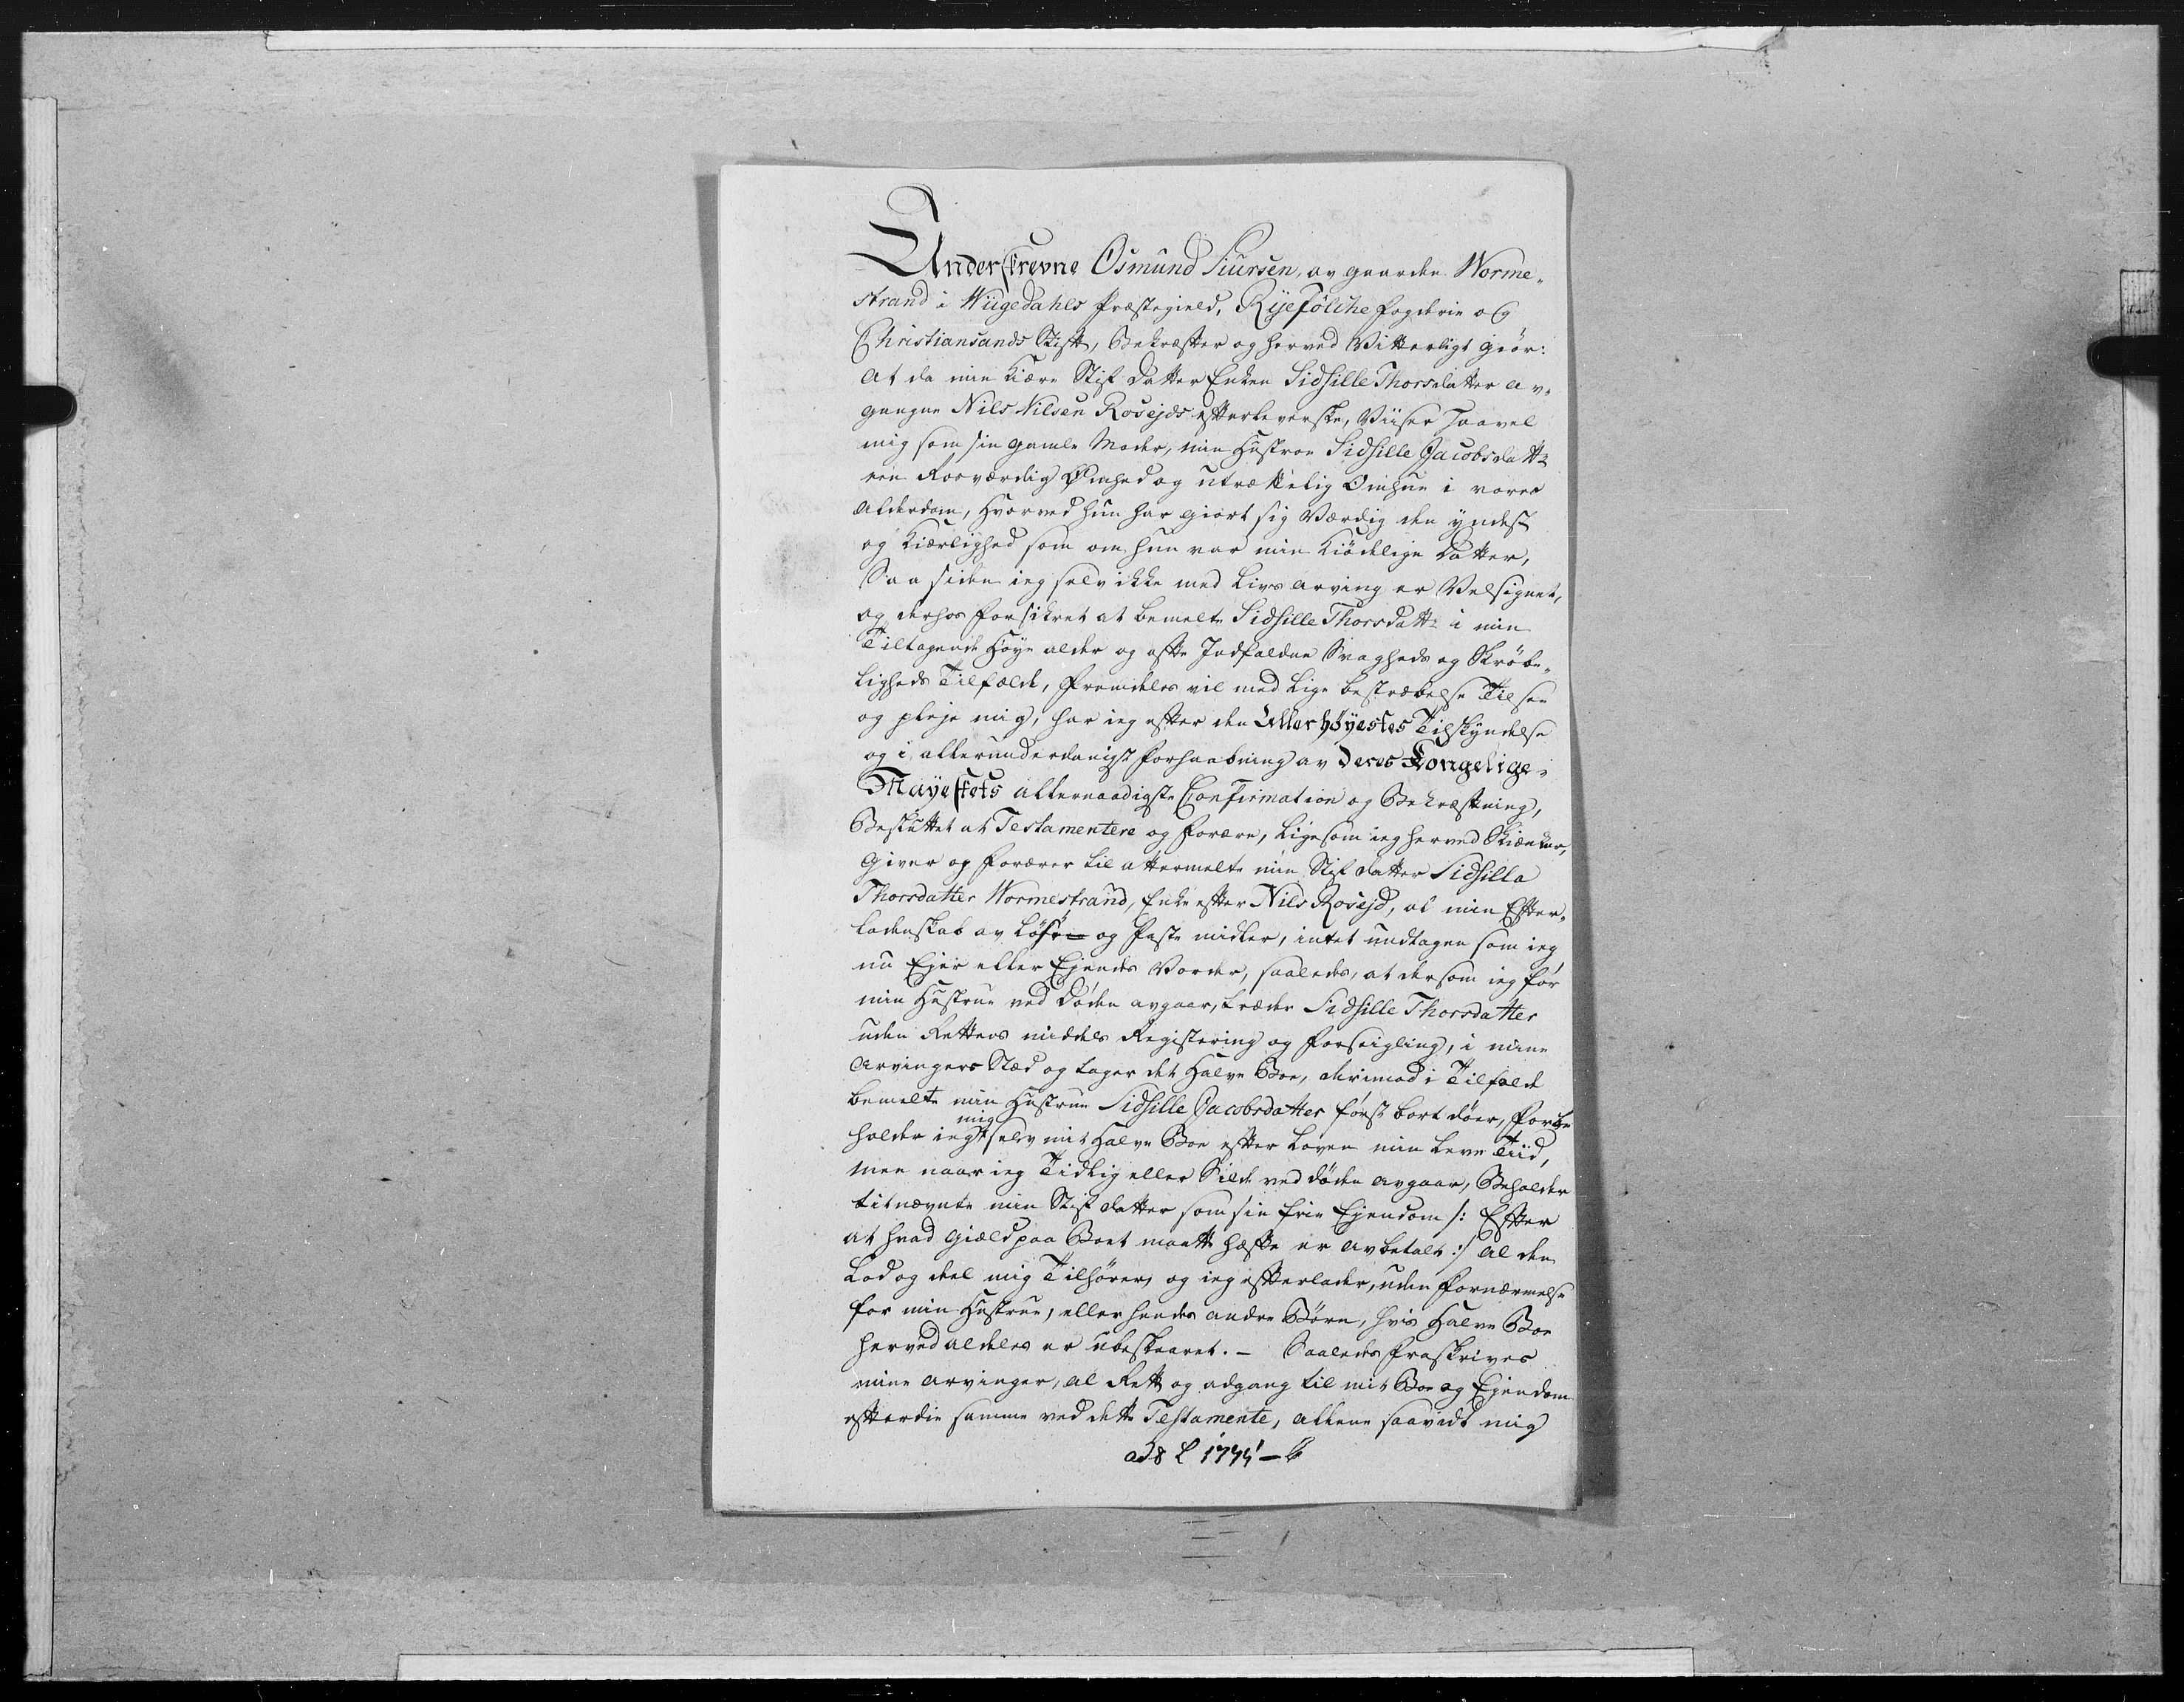 Underskrevne Osmund Siursen, av gaarden Worme-
strand i Wiigedahls Præstegield, Ryefølche fogderie og
Christiansands Stift, Bekræfter og herved Vitterligt giør:
At da min kiære Stif datter Enken Sidsille Thorsdatter av-
gangne Nils Nilsen Rosejds efterleverske, Viiser saavel
mig som sin gamle Moder, min Hustroe Sidsille Jacobsdattr
een Roesværdig Ømhed og utrættelig Omhue i vores
Alderdom, hvorved hun har giort sig Værdig den yndest
og Kiærlighed som om hun var min kiødelige Datter,
Saa siden ieg selv ikke med livs arving er Velsignet,
og derhos forsikret at bemelte Sidsille Thorsdattr i min
Tiltagende høye alder og ofte Indfaldne Svagheds og Skrøbe-
ligheds Tilfælde, fremdeles vil med lige bestræbelse Tilsee
og pleje mig, har ieg efter den Allerhøyestes Tilskyndelse
og i allerunderdanigst forhaabning av Deres Kongelige
Mayestets allernaadigste Confirmation og Bekræftning,
Besluttet at Testamentere og forære, ligesom ieg herved Skiænker,
giver og forærer til attermelte min Stif datter Sidsilla
Thorsdatter Wormestrand, Enke efter Nils Rosejd, al min Efter-
ladenskab av løse og faste midler, intet undtagen som ieg
nu Ejer eller Ejendes Vorder, saaledes, at dersom ieg før
min Hustrue ved Døden avgaar, træder Sidsille Thorsdatter
uden Rettens middels Registering og forseigling, i mine
Arvingers Stæd og tager det halve Boe, derimod i Tilfælde
bemelte min Hustrue Sidsille Jacobsdatter først bort døer, forbe
holder ieg mig selv mit halve Boe efter loven min leve Tiid,
men naar ieg Tidlig eller Silde ved døden avgaar, Beholder
titnævnte min Stif datter som sin frie Ejendom /: Efter
at hvad gield paa Boet maatte hæfte er avbetalt :/ al den
Lod og deel mig Tilhører, og ieg efterlader, uden fornærmelse
for min Hustrue, eller hendes andre Børn, hvis halve Boe
herved aldeles er ubeskaaret. – Saaledes fraskrives
mine arvinger, al Rett og adgang til mit Boe og Ejendom
efterdie samme ved dette Testamente, allene saavidt mig